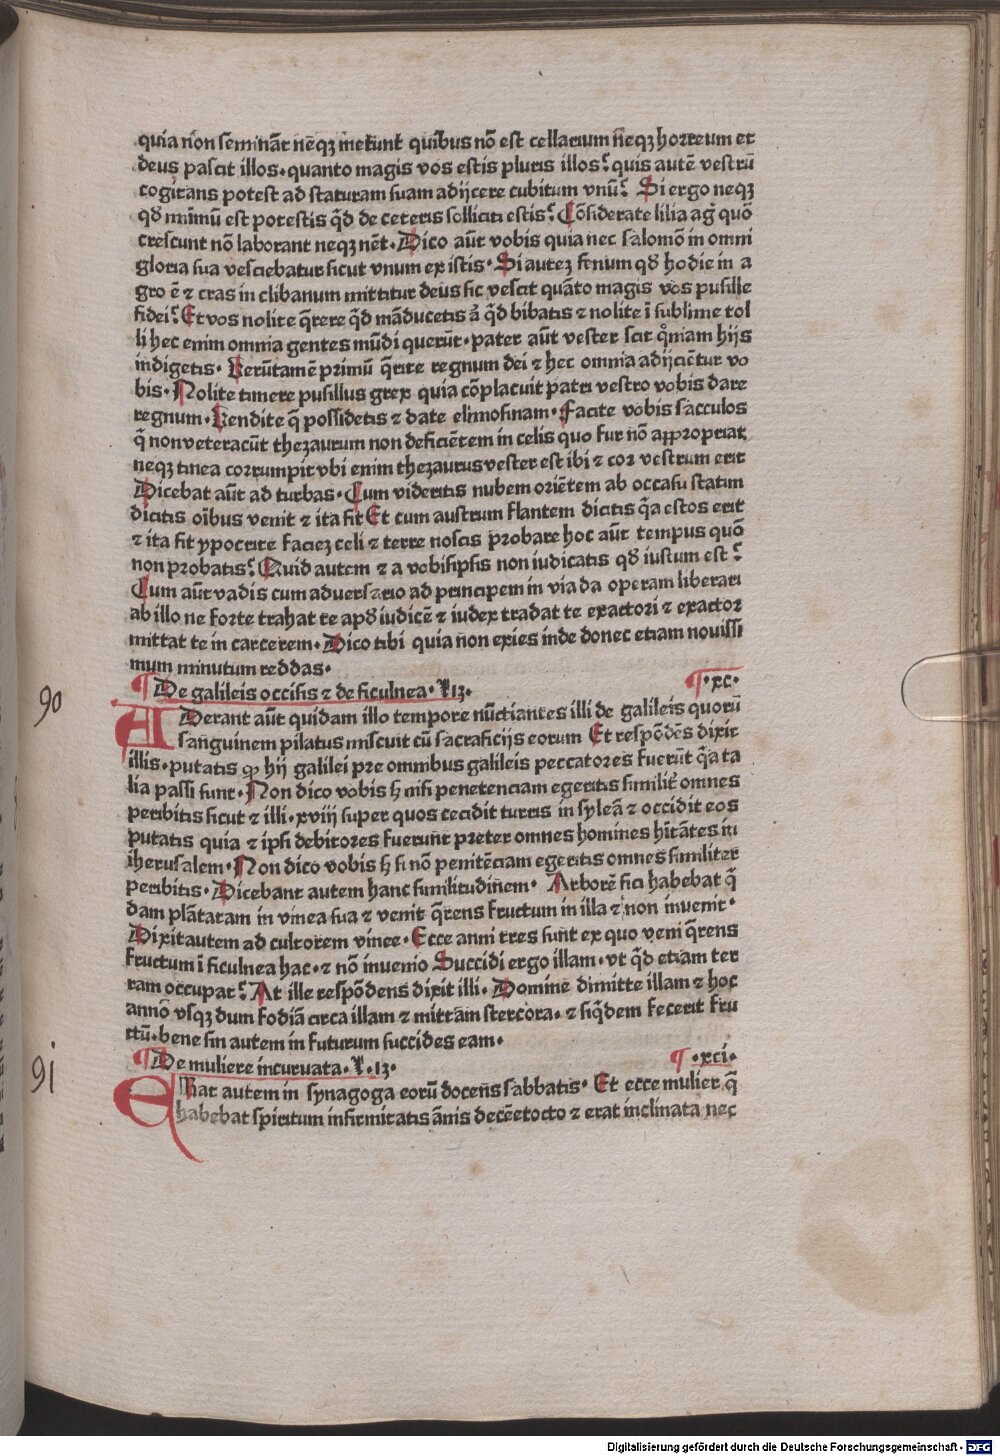 quia non seminãt neqꝫ metunt quibus nõ est cellarium neqꝫ horreum et
deus pascit illos·quanto magis vos estis pluris illos? quis autẽ vestrũ
cogitans potest ad staturam suam adijcere cubitum vnũ? Si ergo neqꝫ
qđ minimũ est potestis qͥd de ceteris solliciti estis? Cõsiderate lilia agͥ quõ
crescunt nõ laborant neqꝫ nẽt·Dico aũt vobis quia nec salomõ in omni
gloria sua vesciebatur sicut vnum ex istis·Si auteꝫ fenum qđ hodie in a
gro ẽ ⁊ cras in clibanum mittitur deus sic vescit quãto magis vos pusille
fidei? Et vos nolite q̃rere qͥd mãducetis aͭ qͥd bibatis ⁊ nolite ĩ sublime tol
li hec enim omnia gentes mũdi querũt·pater aũt vester scit qm̃iam hijs
indigetis·Verũtamẽ primũ q̃rite regnum dei ⁊ hec omnia adijciẽtur vo
bis·Nolite timere pusillus grex quia cõplacuit patri vestro vobis dare
regnum·Vendite q̃ possidetis ⁊ date elimosinam·Facite vobis sacculos
q̃ non veteracũt thezaurum non deficiẽtem in celis quo fur nõ appropriat
neqꝫ tinea corrumpit vbi enim thezaurus vester est ibi ⁊ cor vestrum erit
Dicebat aũt ad turbas·Cum videritis nubem oriẽtem ab occasu statim
dicitis oĩbus venit ⁊ ita fit Et cum austrum flantem dicitis qͥa estos erit
⁊ ita fit ypocrite facieꝫ celi ⁊ terre noscis probare hoc aũt tempus quõ
non probatis? Quid autem ⁊ a vobisipsis non iudicatis qđ iustum est?
Cum aũt vadis cum aduersario ad principem in via da operam liberari
ab illo ne forte trahat te apđ iudicẽ ⁊ iudex tradat te exactori ⁊ exactor
mittat te in carcerem·Dico tibi quia non exies inde donec etiam nouissi
mum minutum reddas·
¶De galileis occisis ⁊ de ficulnea·L·13· ¶·xc·
90
ADerant aũt quidam illo tempore nũctiantes illi de galileis quorũ
sanguinem pilatus miscuit cũ sacraficijs eorum Et respõdẽs dixit
illis·putatis ꝙ hij galilei pre omnibus galileis peccatores fuerũt qͥa ta
lia passi sunt·Non dico vobis ſꝫ nisi penetenciam egeritis similit̃ omnes
peribitis sicut ⁊ illi·xviij super quos cecidit turris in syleã ⁊ occidit eos
putatis quia ⁊ ipsi debitores fuerunt preter omnes homines hĩtãtes in
iherusalem·Non dico vobis ſꝫ si nõ penitẽciam egeritis omnes similiter
peribitis·Dicebant autem hanc similitudinem· Arborẽ fici habebat q̃
dam plãtatam in vinea sua ⁊ venit q̃rens fructum in illa ⁊ non inuenit·
Dixit autem ad cultorem vinee·Ecce anni tres sunt ex quo veni q̃rens
fructum ĩ ficulnea hac·⁊ nõ inuenio Succidi ergo illam·vt qͥd etiam ter
ram occupat? At ille respõdens dixit illi·Domine dimitte illam ⁊ hoc
anno vsqꝫ dum fodiã circa illam ⁊ mittam stercora·⁊ siq̃dem fecerit fru
ctũ·bene sin autem in futurum succides eam·
¶De muliere incuruata·L·13· ¶·xci·
91
ERat autem in synagoga eorũ docens sabbatis· Et ecce mulier q̃
habebat spiritum infirmitatis ãnis decẽetocto ⁊ erat inclinata nec
Digitalisierung gefördert durch die Deutsche Forschungsgemeinschaft - DFG